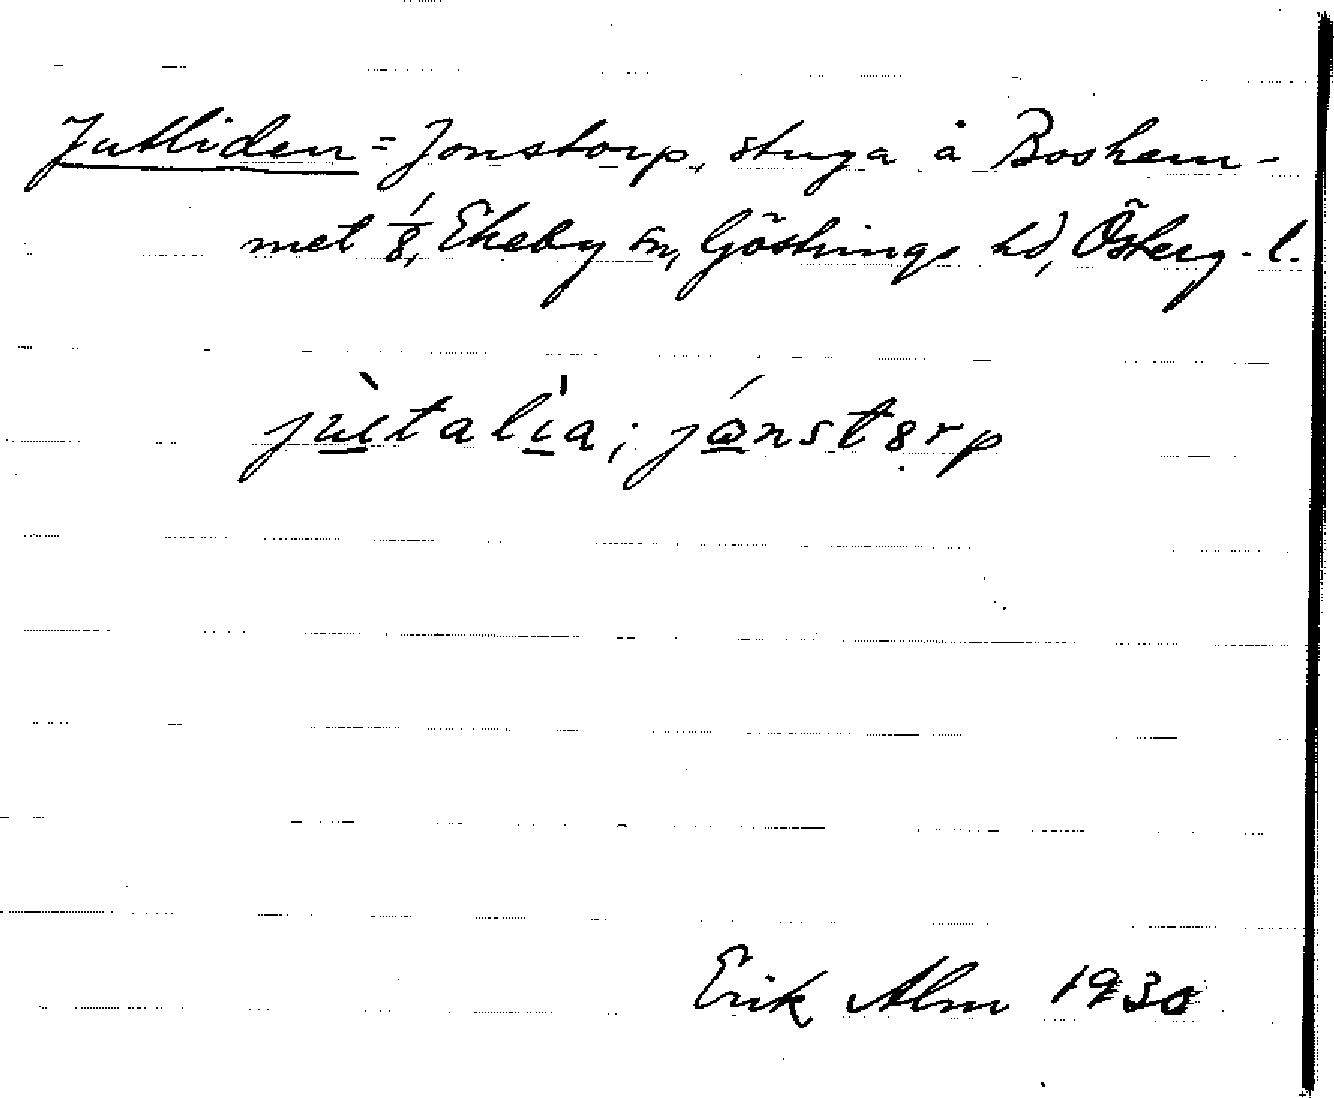 Jutliden = Jonstorp, stuga å Boshem-
met 1/8, Ekeby sn, Göstrings hd, Österg. l.
jùtalía; jónstɐrp
Erik Alm 1930